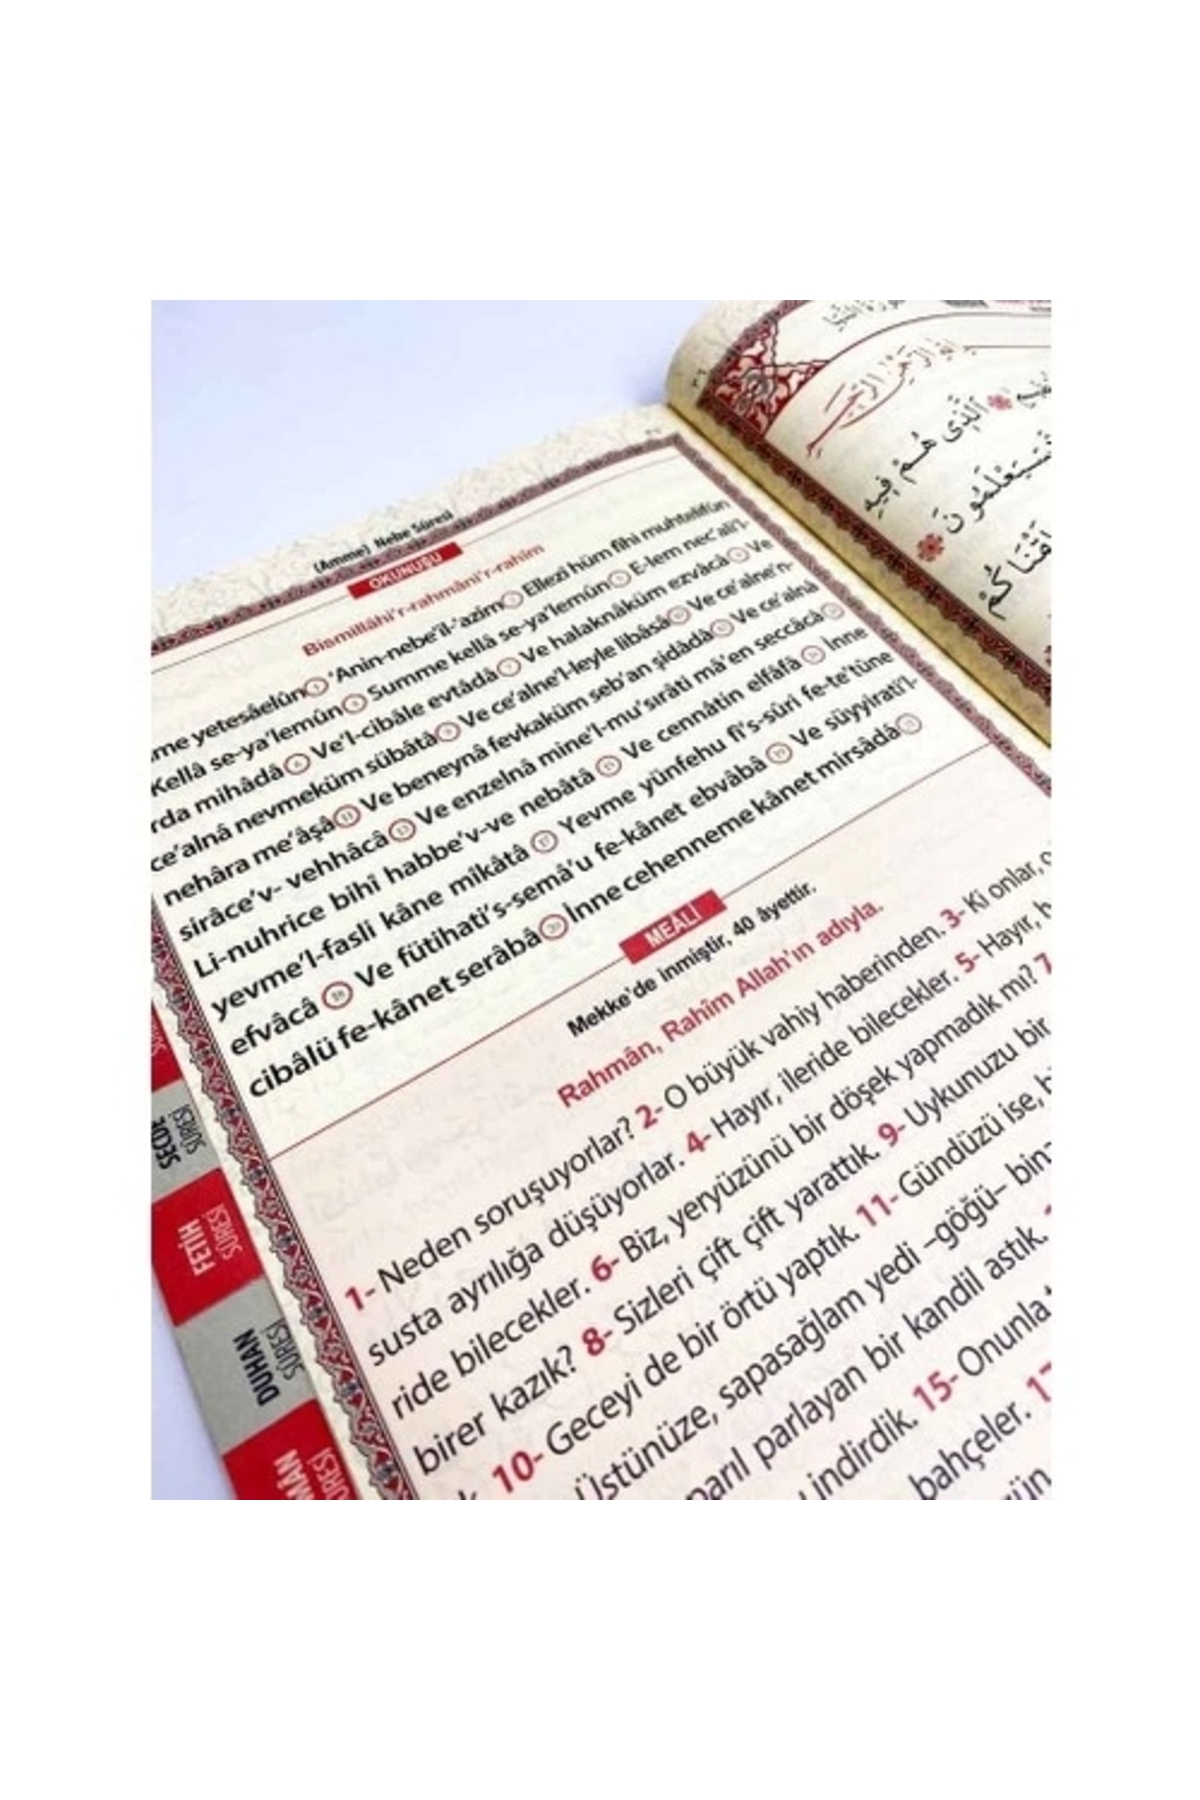 (Amme) Nebe Sûresi
OKUNUŞU
Bismillâhi'r-rahmâni'r-rahîm
me yetesâelûn 1 'Anin-nebe'il-'azîm 2 Ellezî hüm fîhi muhtelifûn
Kellâ se-ya'lemûn 4 Summe kellâ se-ya'lemûn 5 E-lem nec'ali'l-
rda mihâdâ 6 Ve'l-cibâle evtâdâ 7 Ve halaknâküm ezvâcâ 8 Ve
ce'alnâ nevmeküm sübâtâ 9 Ve ce'alne'l-leyle libâsâ 10 Ve ce'alne'n-
nehâra me'âşâ 11 Ve beneynâ fevkaküm seb'an şidâdâ 12 Ve ce'alnâ
sirâce'v- vehhâcâ 13 Ve enzelnâ mine'l-mu'sırâti mâ'en seccâcâ 14
Li-nuhrice bihî habbe'v-ve nebâtâ 15 Ve cennâtin elfâfâ 16 İnne
yevme'l-fasli kâne mîkâtâ 17 Yevme yünfehu fi's-sûri fe-te'tûne
efvâcâ 18 Ve fütihati's-semâ'u fe-kânet ebvâbâ 19 Ve süyyirati'l-
cibâlü fe-kânet serâbâ 20 İnne cehenneme kânet mirsâdâ 21
MEALİ
Mekke'de inmiştir, 40 âyettir.
Rahmân, Rahîm Allah'ın adıyla.
1- Neden soruşuyorlar? 2- O büyük vahiy haberinden. 3- Ki onlar,
susta ayrılığa düşüyorlar. 4- Hayır, ileride bilecekler. 5- Hayır,
ride bilecekler. 6- Biz, yeryüzünü bir döşek yapmadık mı? 7
birer kazık? 8- Sizleri çift çift yarattık. 9- Uykunuzu bir
10- Geceyi de bir örtü yaptık. 11- Gündüzü ise,
Üstünüze, sapasağlam yedi –göğü– bin
parıl parlayan bir kandil astık.
indirdik. 15- Onunla
bahçeler. 17
SECDE
SÛRESİ
FETİH
SÛRESİ
DUHAN
SÛRESİ
MÂN
SÛRESİ
سُورَةُ النَّبَإِ
اَلَّذِي هُمْ فِيهِ
سَيَعْلَمُونَ